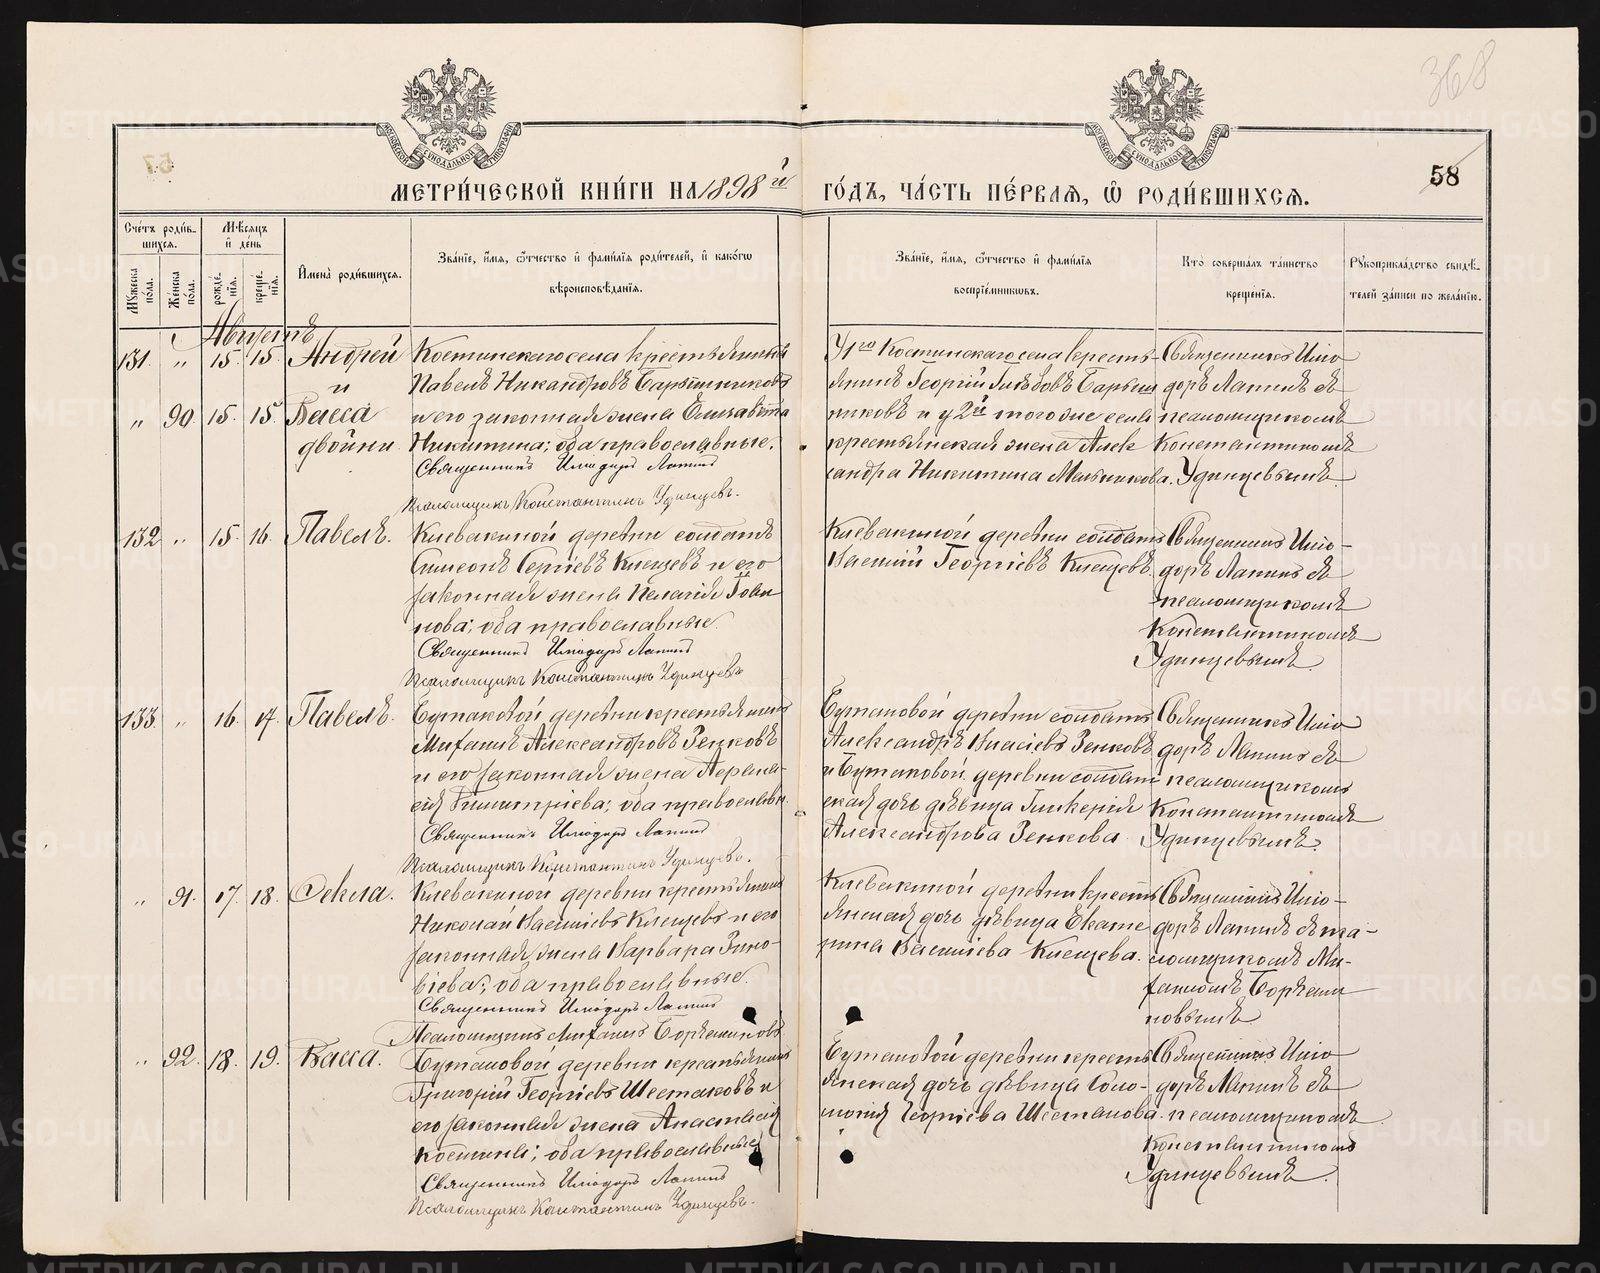 368
58
МЕТРИ́ЧЕСКОЙ КНИ́ГИ НА 1898й ГО́ДЪ, ЧА́СТЬ ПЕ́РВАѦ, Ѡ҆ РОДИ́ВШИХСѦ.
Сче́тъ роди́в-
шихсѧ.
Мꙋжеска по́ла.
Же́нска по́ла.
Мѣ́сѧцъ
и҆ де́нь
рожде́-
нїѧ.
креще́-
нїѧ.
И҆мена̀ роди́вшихсѧ.
Зва́нїе, и҆́мѧ, ѻ҆́тчество и҆ фами́лїѧ роди́телей, и҆ како́гѡ
вѣроисповѣ́данїѧ.
Зва́нїе, и҆́мѧ, ѻ҆́тчество и҆ фами́лїѧ
воспрїе́мникѡвъ.
Кто̀ соверша́лъ та́инство
креще́нїѧ.
Рꙋкоприкла́дство свидѣ́-
телей за́писи по жела́нїю.
Августъ
131. " 15. 15. Андрей
и
" 90. 15. 15. Васса
двойни
Костинскаго села крестьянинъ
Павелъ Никандровъ Барышниковъ
и его законная жена Елизавета
Никитина; оба православные.
Священникъ Илиодоръ Лапинъ
Псаломщикъ Константинъ Удинцевъ.
У 1го Костинскаго села кресть-
янинъ Георгій Глѣбовъ Барыш
никовъ и у 2й того же села
крестьянская жена Алек
сандра Никитина Мельникова.
Священникъ Илио
доръ Лапинъ съ
псаломщикомъ
Константиномъ
Удинцевымъ.
132 " 15. 16. Павелъ.
Клевакиной деревни солдатъ
Симеонъ Сергіевъ Клещевъ и его
законная жена Пелагія Іоан
нова; оба православные.
Священникъ Илиодоръ Лапинъ
Псаломщикъ Константинъ Удинцевъ
Клевакиной деревни солдатъ
Василій Георгіевъ Клещевъ.
Священникъ Илио-
доръ Лапинъ съ
псаломщикомъ
Константиномъ
Удинцевымъ.
133 " 16. 17. Павелъ.
Бутаковой деревни крестьянинъ
Михаилъ Александровъ Зенковъ
и его законная жена Аѳана-
сія Димитріева; оба православн.
Священникъ Илиодоръ Лапинъ
Псаломщикъ Константинъ Удинцевъ.
Бутаковой деревни солдатъ
Александръ Власіевъ Зенковъ
и Бутаковой деревни солдат
ская дочь дѣвица Гликерія
Александрова Зенкова.
Священникъ Илио
доръ Лапинъ съ
псаломщикомъ
Константиномъ
Удинцевымъ.
" 91. 17. 18. Ѳекла.
Клевакиной деревни крестьянинъ
Николай Васильевъ Клещевъ и его
законная жена Варвара Зино-
віева; оба православные.
Священникъ Илиодоръ Лапинъ
Псаломщикъ Михаилъ
Клевакиной деревни кресть
янская дочь дѣвица Екате
рина Васильева Клещева.
Священникъ Илио-
доръ Лапинъ съ пса-
ломщикомъ Ми-
хаиломъ
" 92. 18. 19. Васса.
Бутаковой деревни крестьянинъ
Григорій Георгіевъ Шестаковъ и
его законная жена Анастасія
Костина; оба православные
Священникъ Илиодоръ Лапинъ
Псаломщикъ Константинъ Удинцевъ.
Бутаковой деревни кресть
янская дочь дѣвица Соло-
монія Георгіева Шестакова.
Священникъ Илио
доръ Лапинъ съ
псаломщикомъ
Константиномъ
Удинцевымъ.